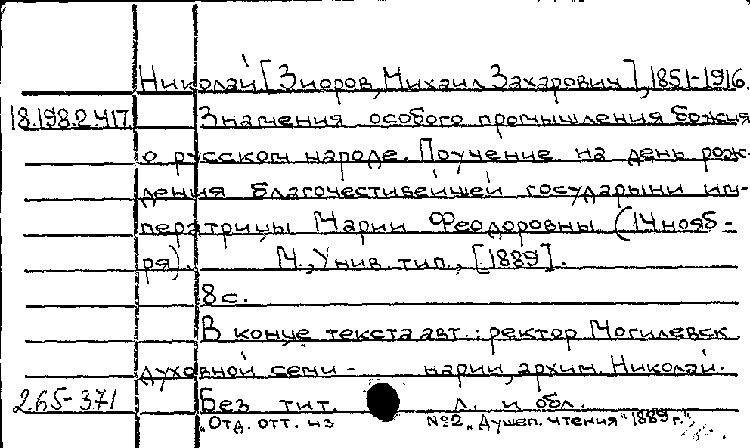 Николай [Зиоров, Михаил Захарович], 1851-1916.
18.198.2.417 Знамения особого промышления божия
о русском народе. Поучение на день рож-
дения благочестивейшей государыни им-
ператрицы Марии Феодоровны (14 нояб-
ря). М., Унив. тип., [1889].
8 с.
В конце текста авт.: ректор Могилевск
духовной семи- нарии, архим. Николай.
265-371 Без тит. л. и обл.
"Отд. отт. из №2 "Душеп. чтения" 1889 г."